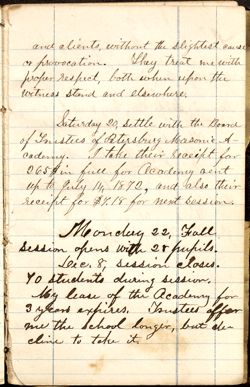 and clients, without the slightest cause
or provocation. They treat me with
proper respect, both when upon the
witness stand and elsewhere.
Saturday 20, settle with the Board
of Trustees of Petersburg Masonic A-
cademy. I take their receipt for
265$ in full for Academy rent
up to July 14, 1872, and also their
receipt for $7.18 for next session.
Monday 22, Fall
session opens with 28 pupils.
Dec. 8, session closes.
70 students during session.
My lease of the Academy for
3 years expires. Trustees offer
me the school longer, but de-
cline to take it.